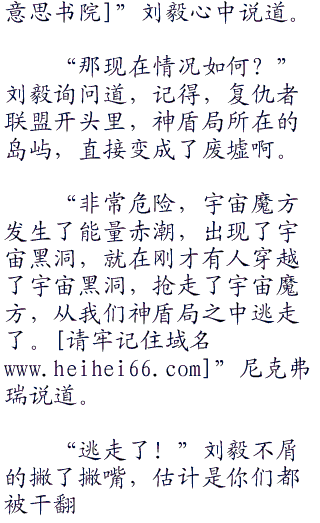 意思书院]”刘毅心中说道。
“那现在情况如何？”
刘毅询问道，记得，复仇者
联盟开头里，神盾局所在的
岛屿，直接变成了废墟啊。
“非常危险，宇宙魔方
发生了能量赤潮，出现了宇
宙黑洞，就在刚才有人穿越
了宇宙黑洞，抢走了宇宙魔
方，从我们神盾局之中逃走
了。[请牢记住域名
www.heihei66.com]”尼克弗
瑞说道。
“逃走了！”刘毅不屑
的撇了撇嘴，估计是你们都
被干翻